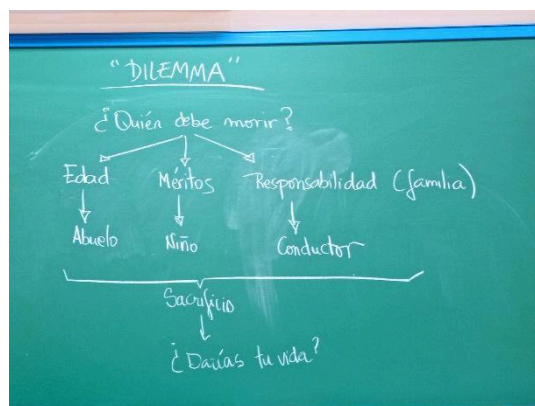 "DILEMMA"
¿Quién debe morir?
Edad Méritos Responsabilidad (familia)
Abuelo Niño Conductor
Sacrificio
¿Darías tu vida?